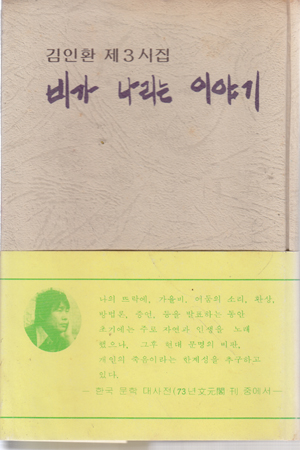 김인환 제3시집
비가 나리는 이야기
나의 뜨락에, 가을비, 어둠의 소리, 환상,
방법론, 증언, 등을 발표하는 동안
초기에는 주로 자연과 인생을 노래
했으나, 그후 현대 문명의 비판,
개인의 죽음이라는 한계성을 추구하고
있다.
— 한국 문학 대사전(73년文元閣 刊 중에서—